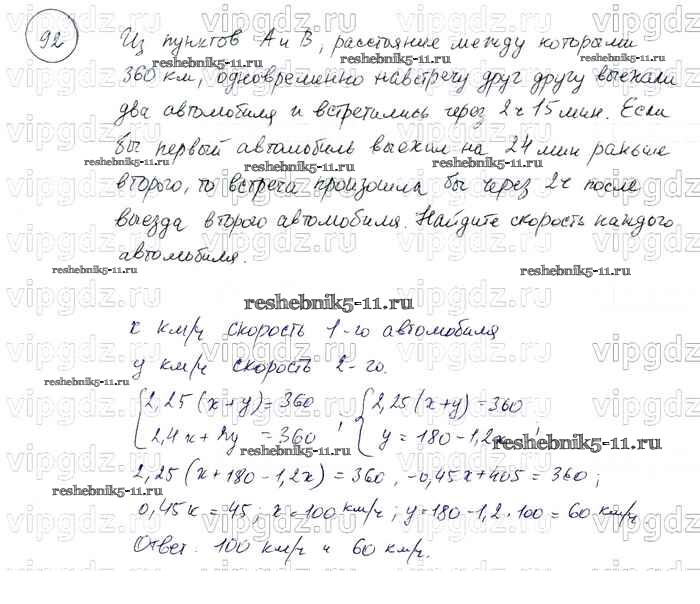 92
Из пунктов А и В, расстояние между которыми
360 км, одновременно навстречу друг другу выехали
два автомобиля и встретились через 2ч 15 мин. Если
бы первый автомобиль выехал на 24 мин раньше
второго, то встреча произошла бы через 2ч после
выезда второго автомобиля. Найдите скорость каждого
автомобиля.
x км/ч скорость 1-го автомобиля
y км/ч скорость 2-го.
{2,25(x+y)=360 , {2,25(x+y)=360
{2,4x+2y =360 {y=180-1,2x ;
2,25(x+180-1,2x)=360, -0,45x+405=360;
0,45x=45; x=100 км/ч; y=180-1,2·100=60 км/ч
Ответ. 100 км/ч и 60 км/ч.
vipgdz.ru
reshebnik5-11.ru